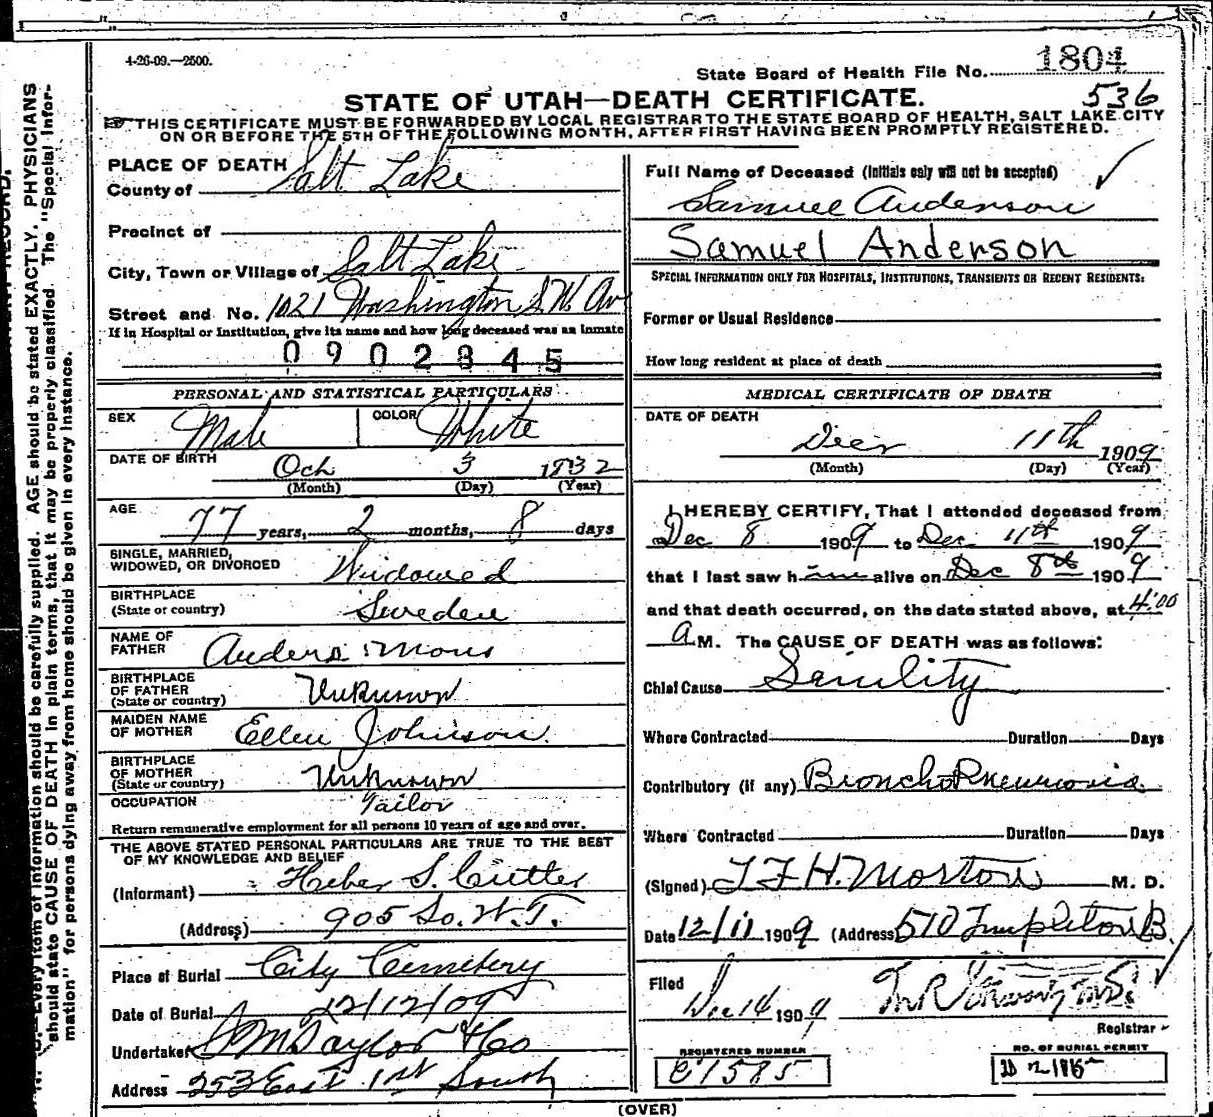 4-26-09.—2500.
State Board of Health File No. 1804
536
STATE OF UTAH—DEATH CERTIFICATE.
THIS CERTIFICATE MUST BE FORWARDED BY LOCAL REGISTRAR TO THE STATE BOARD OF HEALTH, SALT LAKE CITY
ON OR BEFORE THE 5TH OF THE FOLLOWING MONTH, AFTER FIRST HAVING BEEN PROMPTLY REGISTERED.
PLACE OF DEATH
County of Salt Lake
Precinct of
City, Town or Village of Salt Lake
Street and No. 1021 Washington S.W. Av
If in Hospital or Institution, give its name and how long deceased was an inmate
0902845
PERSONAL AND STATISTICAL PARTICULARS
SEX Male COLOR White
DATE OF BIRTH Oct 3 1832
(Month) (Day) (Year)
AGE 77 years, 2 months, 8 days
SINGLE, MARRIED,
WIDOWED, OR DIVORCED Widowed
BIRTHPLACE
(State or country) Sweden
NAME OF
FATHER Anders Mons
BIRTHPLACE
OF FATHER
(State or country) Unknown
MAIDEN NAME
OF MOTHER Ellen Johnson.
BIRTHPLACE
OF MOTHER
(State or country) Unknown
OCCUPATION Tailor
Return remunerative employment for all persons 10 years of age and over.
THE ABOVE STATED PERSONAL PARTICULARS ARE TRUE TO THE BEST
OF MY KNOWLEDGE AND BELIEF
(Informant) Heber S. Cutler
(Address) 905 So. W.T.
Place of Burial City Cemetery
Date of Burial 12/12/09
Undertaker S M Taylor & Co
Address 253 East 1st South
Full Name of Deceased (Initials only will not be accepted)
Samuel Anderson
Samuel Anderson
SPECIAL INFORMATION ONLY FOR HOSPITALS, INSTITUTIONS, TRANSIENTS OR RECENT RESIDENTS:
Former or Usual Residence
How long resident at place of death
MEDICAL CERTIFICATE OF DEATH
DATE OF DEATH
Decr 11th 1909
(Month) (Day) (Year)
I HEREBY CERTIFY, That I attended deceased from
Dec 8 1909 to Dec 11th 1909
that I last saw him alive on Dec 8th 1909
and that death occurred, on the date stated above, at 4:00
A M. The CAUSE OF DEATH was as follows:
Chief Cause Senility
Where Contracted Duration Days
Contributory (if any) Broncho Pneumonia.
Where Contracted Duration Days
(Signed) T F H. Morton M. D.
Date 12/11 1909 (Address 510 Templeton B.
Filed Dec 14 1909
Registrar
REGISTERED NUMBER
C1585
NO. OF BURIAL PERMIT
(OVER)
N. B. Every item of information should be carefully supplied. AGE should be stated EXACTLY. PHYSICIANS
should state CAUSE OF DEATH in plain terms, that it may be properly classified. The "Special Infor-
mation" for persons dying away from home should be given in every instance.